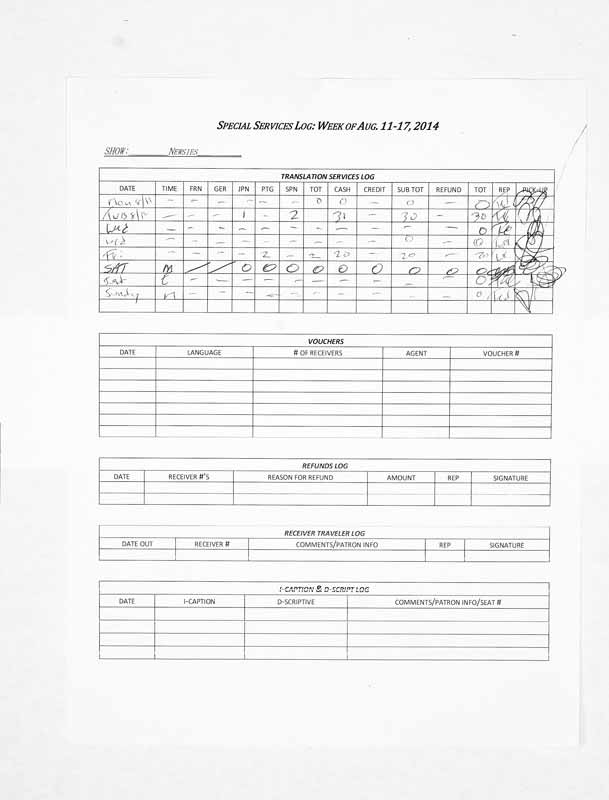 SPECIAL SERVICES LOG: WEEK OF AUG. 11-17, 2014
SHOW: NEWSIES
TRANSLATION SERVICES LOG
DATE TIME FRN GER JPN PTG SPN TOT CASH CREDIT SUB TOT REFUND TOT REP PICK-UP
Mon 8/11 - - - -- - 0 0 - - - 0
- - - 1 - 2 31 - 30 - 30
Wed - - - - - - - - - - 0
Wed - - - - - - - - 0 - 0
Fri - - - 2 - 2 20 - 20 - 20
SAT M / / 0 0 0 0 0 0 0 0 0
Sat - - - - - - - - - - 0
Sundy - - - - - - - - - 0
VOUCHERS
DATE LANGUAGE # OF RECEIVERS AGENT VOUCHER #
REFUNDS LOG
DATE RECEIVER #'S REASON FOR REFUND AMOUNT REP SIGNATURE
RECEIVER TRAVELER LOG
DATE OUT RECEIVER # COMMENTS/PATRON INFO REP SIGNATURE
I-CAPTION & D-SCRIPT LOG
DATE I-CAPTION D-SCRIPTIVE COMMENTS/PATRON INFO/SEAT #